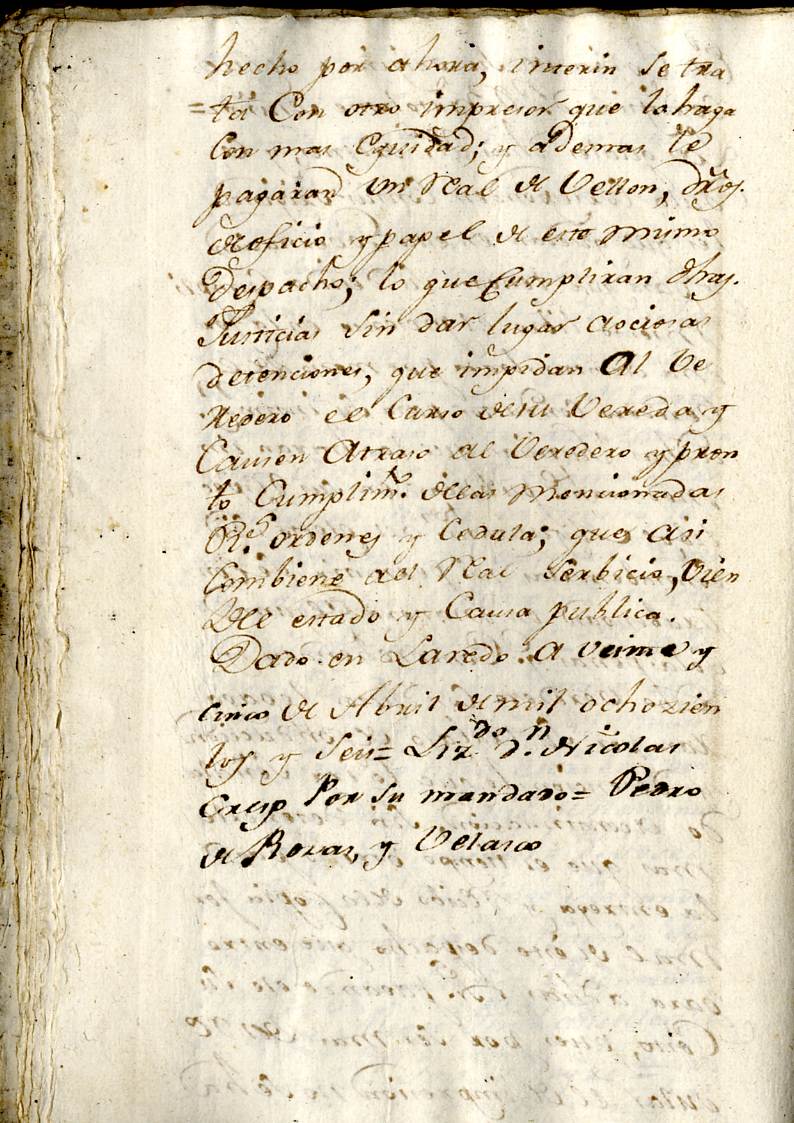 hecho por ahora, interin se tra
=ta Con otro impresor que lo haga
Con mas Equidad; y ademas le
pagaran un Real de Vellon, dros.
de oficio y papel de este mismo
Despacho; lo que Cumpliran dhas.
Justicias sin dar lugar a ociosas
detenciones, que impidan Al Ve
redero el Curso de su Vereda y
Causen Atraso al Veredero y pron
to Cumplimto. de las mencionadas
Rs. ordenes y Cedula; que asi
Combiene al Real Serbicio, Vien
del estado y Causa publica.
Dado en Laredo a veinte y
cinco de Abril de mil ochozien
tos y seis= Lizdo. dn. Nicolas
Cresp Por su mandado= Pedro
de Rozas, y Velasco